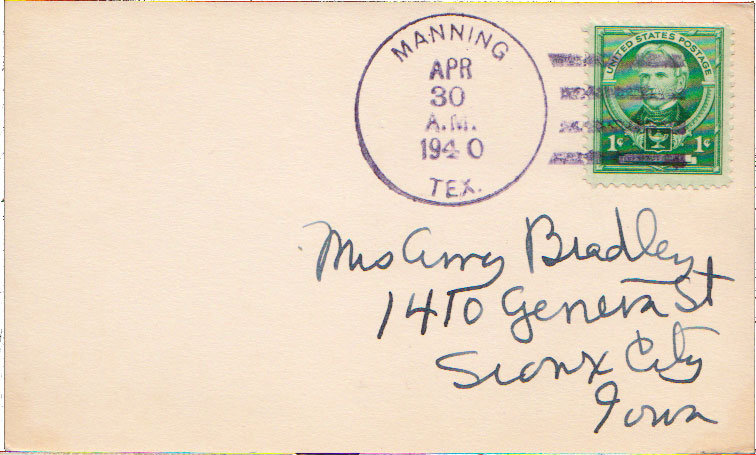 MANNING
APR
30
A.M.
1940
TEX.
UNITED STATES POSTAGE
1¢ 1¢
Mrs Amy Bradley
1410 Geneva St
Sioux City
Iowa